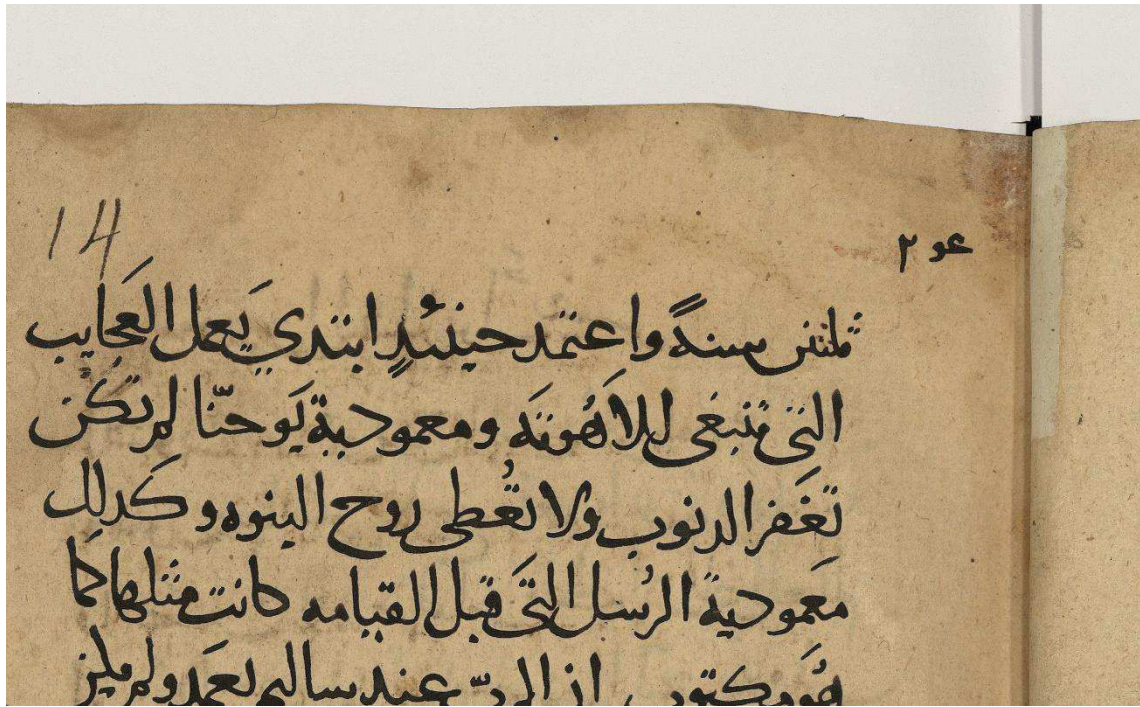 14
ثلثين سنةً واعتمد حينئدٍ ابتدي يَعمل العَجايب
التي تنبغي للاهُوتَه ومعمودية يَوحنّا لم تكن
تغفر الدنوب ولا تعُطي روح البنوه وكدلك
مَعَمودية الرُسل التَي قبل القيامه كانت مثلها كَما
هُو مكتوب ان الربّ عند ساليم يعَمد ولم